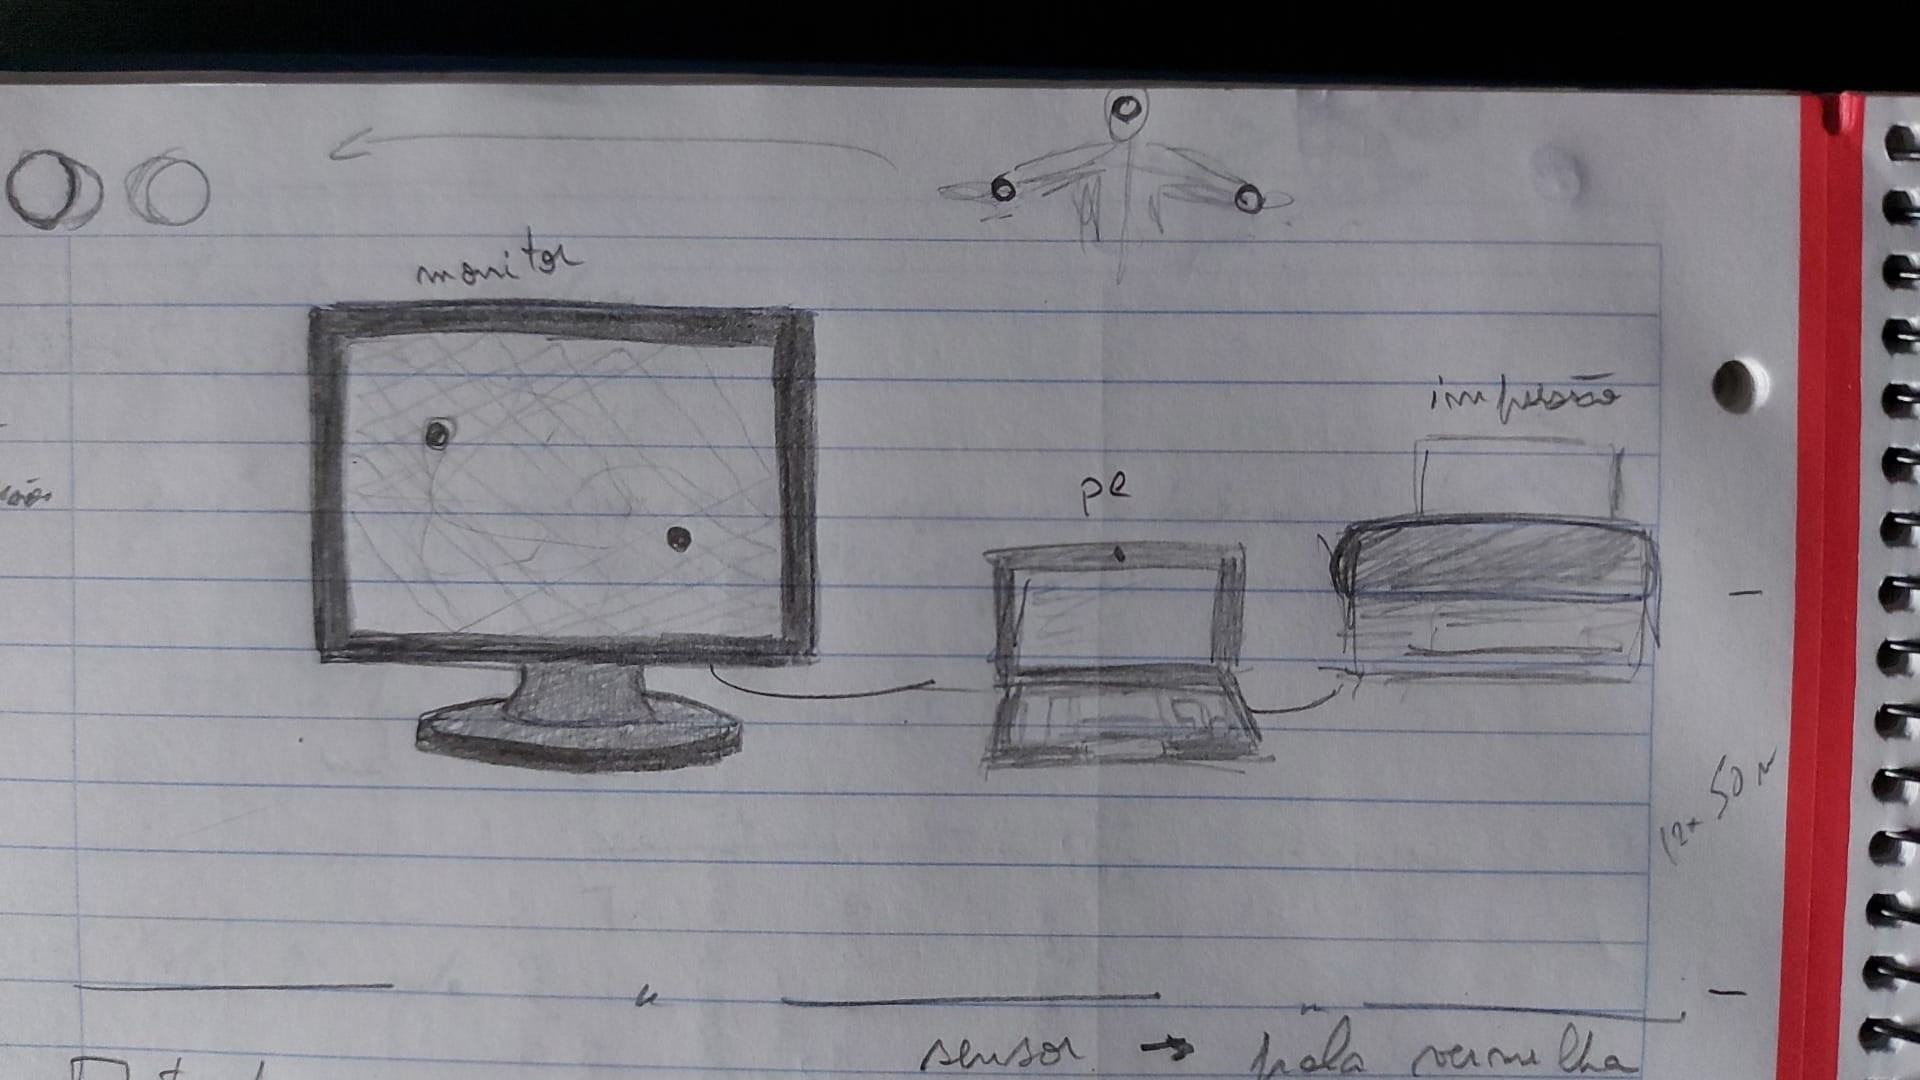 monitor
impressão
pc
12x 50 м
sensor → bola vermelha